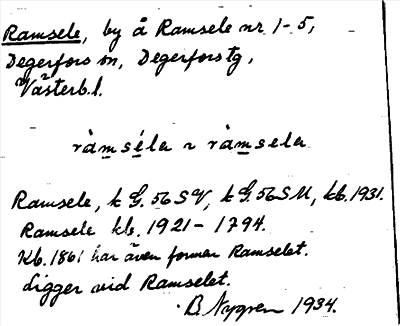 Ramsele, by å Ramsele nr 1-5,
Degerfors sn, Degerfors tg,
Västerb.l.
ràmséla ~ ràmsela
Ramsele, k G. 56 SV, k G. 56 SU, kb. 1931.
Ramsele kb. 1921-1794.
Kb. 1861 har även former Ramselet.
Ligger vid Ramselet.
B. Nygren 1934.